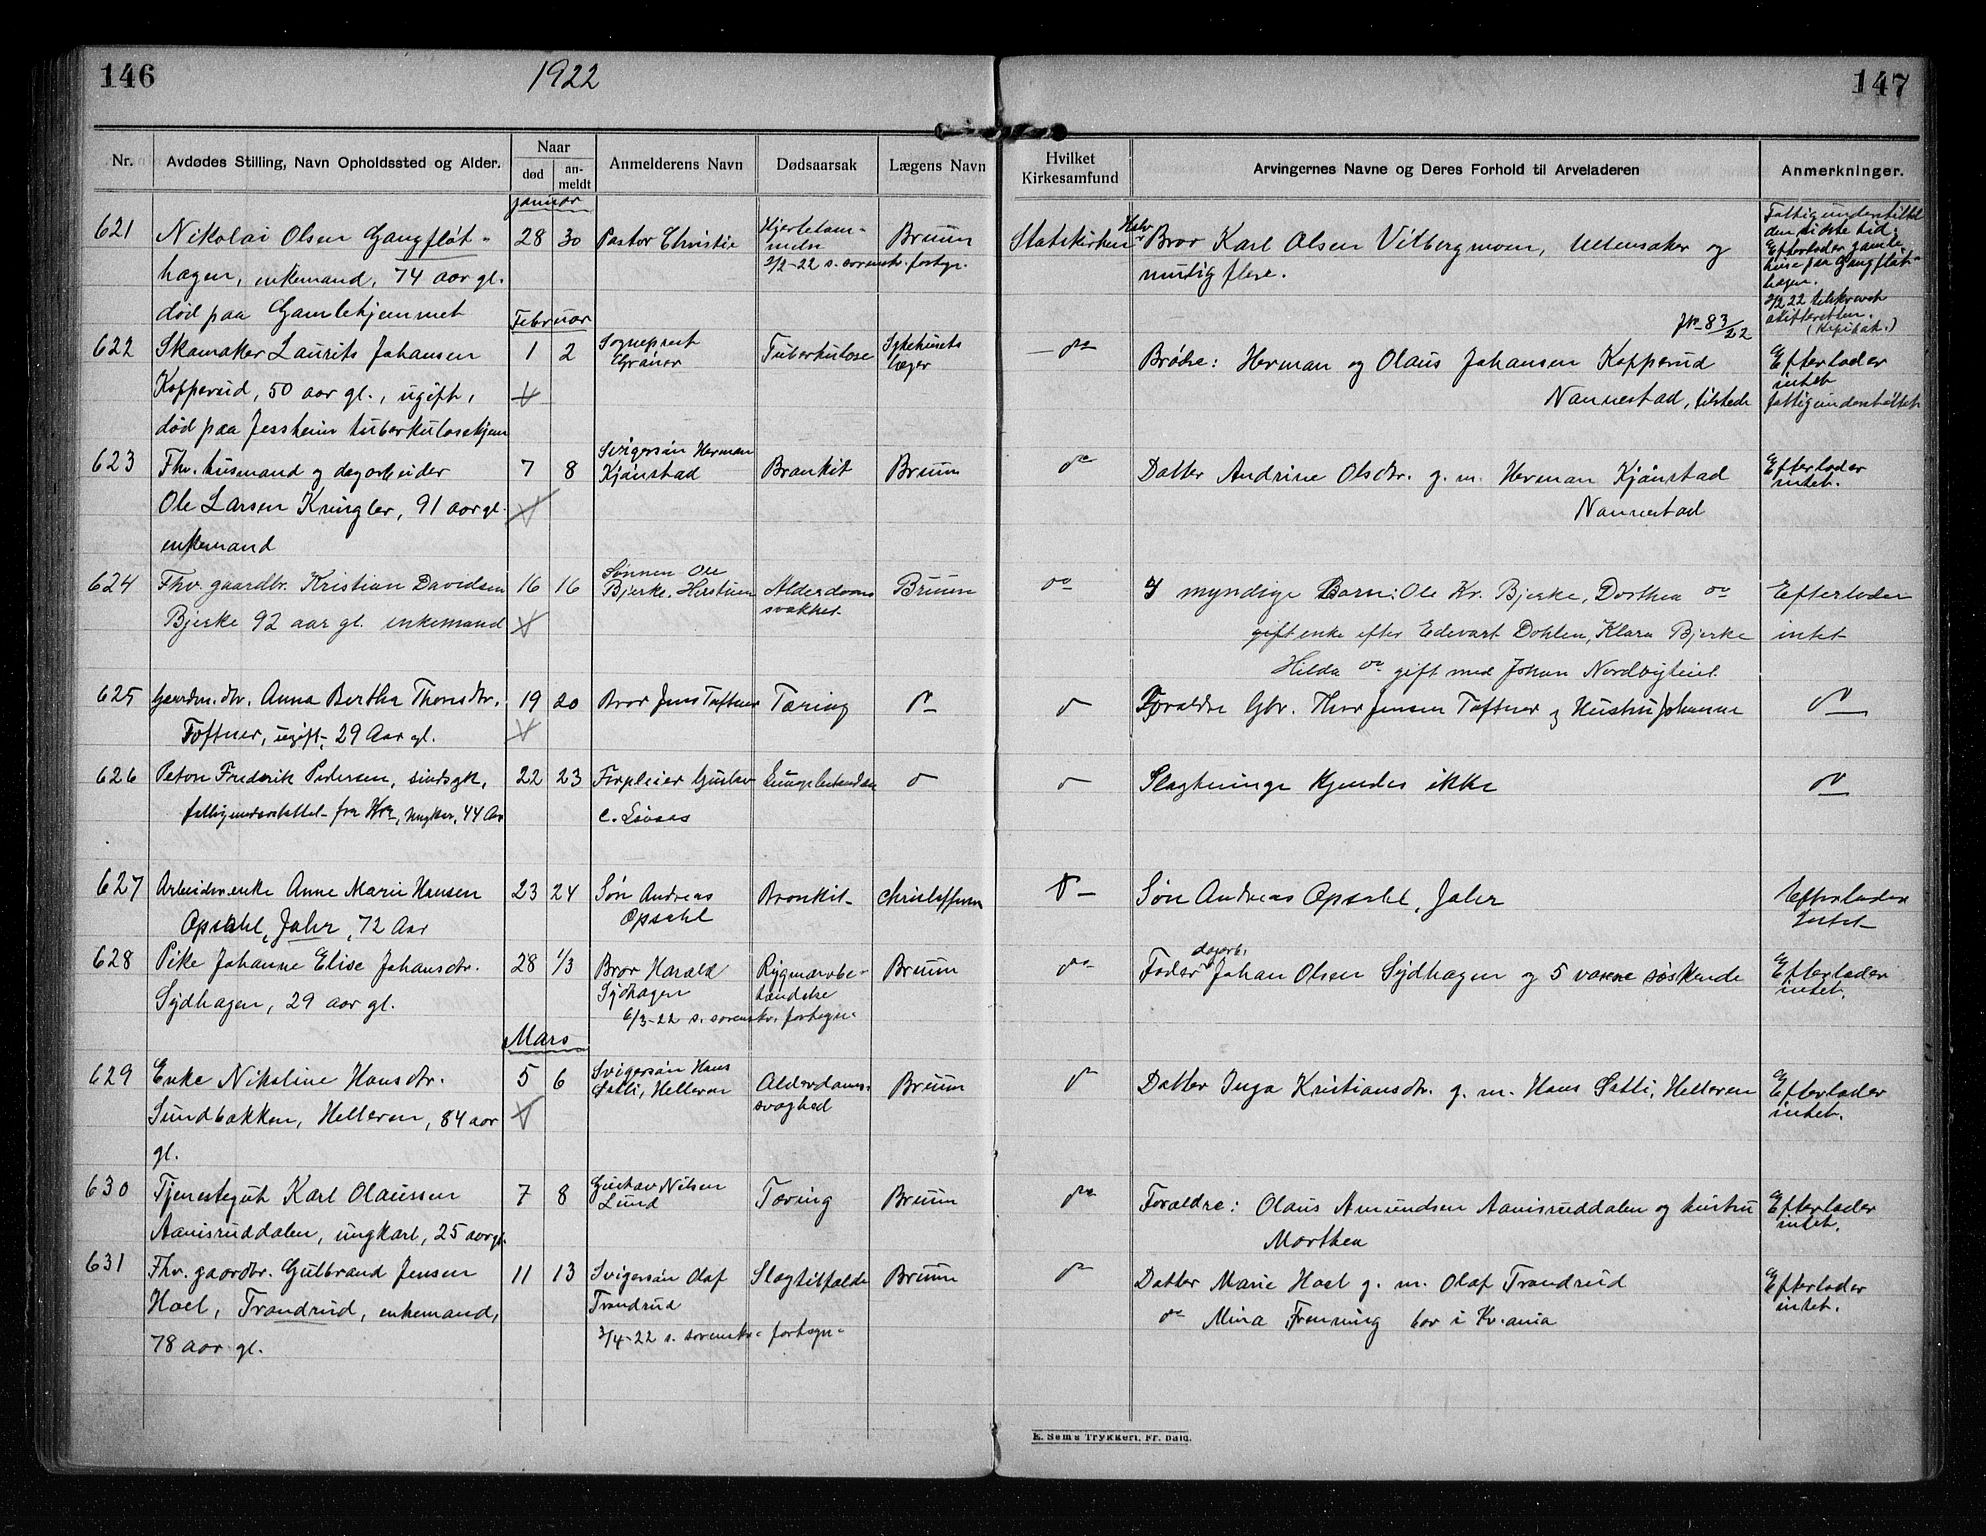 146
1922
147
Nr.
Avdødes Stilling, Navn Opholdssted og Alder.
Naar
død
an-
meldt
Anmelderens Navn
Dødsaarsak
Lægens Navn
Hvilket
Kirkesamfund
Arvingernes Navne og Deres Forhold til Arveladeren
Anmerkninger.
Januar
621
Nikolai Olsen Gangfløt-
hagen, enkemand, 74 aar gl.
død paa Gamlehjemmet
28 30
Pastor Christie
Hjertelam-
melse
2/2-22 s. sorensk. fortegn.
Bruun
Statskirken
Halv-
Bror Karl Olsen Vilbergmoen, Ullensaker og
mulig flere.
Fattigunderstøttet
den sidste tid.
Efterlader gamle
huse paa Gangfløt-
hagen.
2/2 22 tilskrevet
skifteretten.
Jn 83/22
Februar
622
Skomaker Laurits Johansen
Kopperud, 50 aar gl., ugift,
død paa Jessheim tuberkulosehjem
1 2
Sogneprest
Grånor
Tuberkulose
Sykehusets
læger
Brødre: Herman og Olaus Johansen Kopperud
Nannestad, tilstede
Efterlader
intet
fattigunderstøttet
623
Fhv. husmand og dagarbeider
Ole Larsen Kringler, 91 aar gl.
enkemand
7 8
Svigersøn Herman
Kjønstad
Bronkit
Bruun
Datter Andrine Olsdtr. g. m. Herman Kjønstad
Nannestad
Efterlader
intet.
624
Fhv. gaardbr. Kristian Davidsen
Bjerke 92 aar gl. enkemand
16 16
Sønnen Ole
Bjerke, Herstuen
Alderdoms
svakhet
Bruun
4 myndige Børn: Ole Kr. Bjerke, Dorthea do
gift enke efter Edevart Dohlen, Klara Bjerke
Hilda do gift med Johan Nordbygleiet
Efterlader
intet
625
Gaardm. dtr. Anna Berthe Thorsdtr.
Toftner, ugift, 29 Aar gl.
19 20
Bror Jens Toftner
Tæring
Foraldre Gbr. Thor Jensen Toftner og Hustru Johanne
626
Peton Fredrik Pedersen, sindsyk,
fattigunderstøttet fra Kra, ungkar, 44 Aar
22 23
Forpleier Gustav
Slegtninge kjendes ikke
627
Arbeiderenke Anne Marie Hansen
Opsahl, Jahr, 72 Aar
23 24
Søn Andreas
Opsahl
Bronkit
Christoffersen
Søn Andreas Opsahl, Jahr
Efterlader
Intet
628
Pike Johanne Elise Johansdtr.
Sydhagen, 29 aar gl.
28 1/3
Bror Harald
Sydhagen
Rygmarvbe-
tændelse
6/3-22 s. sorenskr. fortegn.
Bruun
Fader dagarb. Johan Olsen Sydhagen og 5 voxne søskende
Efterlader
intet.
Mars
629
Enke Nikoline Hansdtr.
Sundbakken, Helleren, 84 aar
gl.
5 6
Svigersøn Hans
Sætli, Helleren
Alderdoms-
svaghed
Bruun
Datter Inga Kristiansdtr. g. m. Hans Sætli, Helleren
Efterlader
intet.
630
Tjenestegut Karl Olaussen
Aamisruddalen, ungkarl, 25 aar gl.
7 8
Gustav Nilsen
Lund
Tæring
Bruun
Forældre: Olaus Amundsen Aamisruddalen og hustru
Marthea
Efterlader
intet.
631
Fhv. gaardbr. Gulbrand Jensen
Hoel, Trandrud, enkemand,
78 aar gl.
11 13
Svigersøn Olaf
Trandrud
Slagtilfælde
3/4-22 s. sorensk. fortegn.
Bruun
Datter Marie Hoel g. m. Olaf Trandrud
do Mina Frenning bor i Kr.ania
Efterlader
intet.
E. Sem's Trykkeri, Fr.hald.